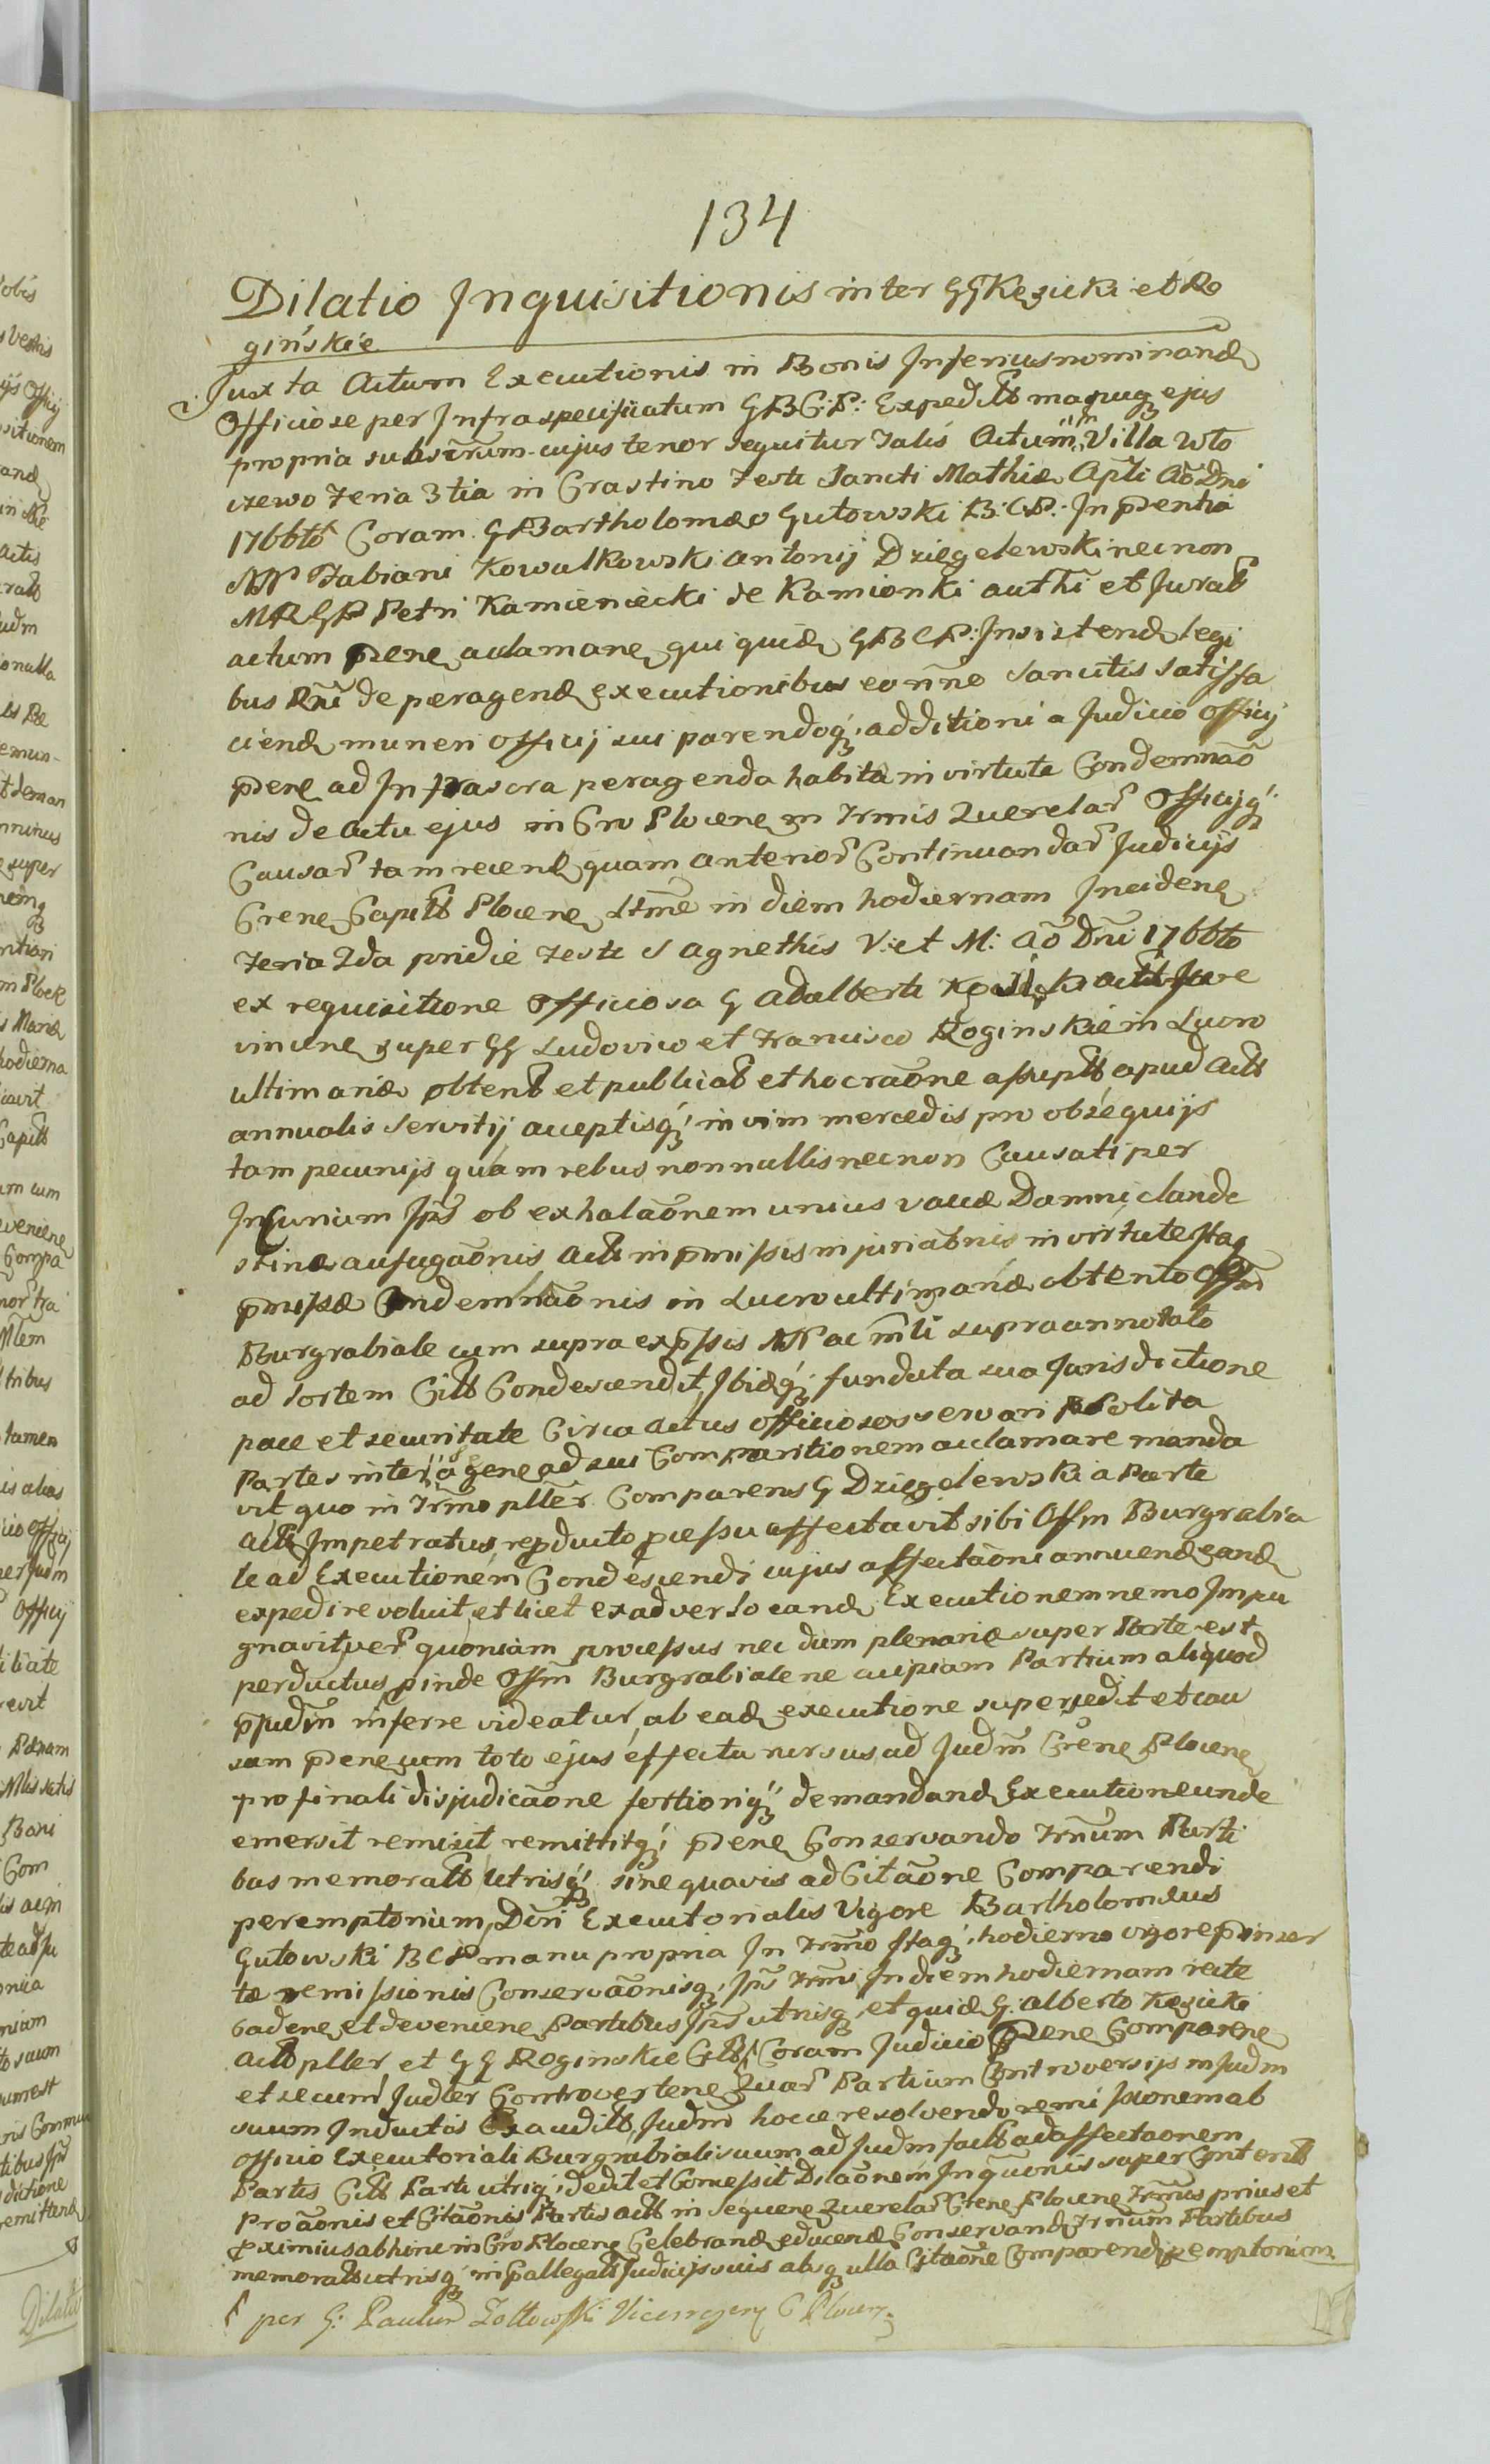 134
Dilatio Inquisitionis inter GG Kęsicki et Ro
gińskie
Juxta Actum Executionis in Bonis Inferius nominand
Officiose per Infraspecificatum GBCP: Expeditt manuq ejus
propria subscrum cujus tenor sequitur Talis Actum in Villa Wto
czewo Feria 3tia in Crastino Festi Sancti Mathiæ Apli Ao Dni
1766to Coram G Bartholomæo Gutowski B:C:P: In pntia
NN Fabiani Kowalkowski Antonij Dzięgelewski necnon
MR GP Petri Kamieniecki de Kamionki authi et Jurat
actum psene aclamane qui quid GBCP: Insistend legi
bus Rni de peragend executionibus eo nne Sancitis satisfa
ciend muneri Officij sui parendoq additioni a Judicio Officij
psene ad Infrascra peragenda habita in virtute Condemnao
nis de Actu ejus in Cro Plocene in Trmis Querelar Officijq
Causar tam recent quam anterior Continuandar Judicijs
Crene Capitt Plocene Ltme in diem hodiernam Incidene
Feria 2da pridie Festi S Agnethis V: et M: Ao Dni 1766to
ex requisitione Officiosa G Adalberti Kęsicki Actt Jure
vincene super GG Ludovico et Francisco Roginskie in Lucro
ultimariæ obtent et publicat et hoc raone assuptt apud Actt
annualis Servitij acceptisq in vim mercedis pro obsequijs
tam pecunijs quam rebus nonnullis necnon Causati per
Incuriam Ips ob exhalaonem unius vaccæ Damni clande
stinæ aufugaonis Actt in pmissis injuriaonis in virtute Itaq
pmissæ Condemnaonis in Lucro ultimariæ obtento Offm
Burgrabiale cum supra expssis NN ac mli supra annotato
ad Sortem Citt Condescendit, Ibidq fundata sua Jurisdictione
pace et securitate Circa actus officiosos servari solita
Partes inter agene ad sui Comparitionem acclamare manda
vit quo in Trmo plter Comparens G Dzięgelewski a Parte
Actt Impetratus reproducto pcessu affectavit sibi Offm Burgrabia
le ad Executionem Condescendi cujus affectaoni annuend eand
expedire voluit, et licet ex adverso eand Executionem nemo Impu
gnavit, ver quoniam processus nec dum plenariæ super Parte est
perductus pinde Offm Burgrabiale ne cuipiam Partium aliquod
pjudm inferre videatur, ab ead executione supersedit et cau
sam psene cum toto ejus effectu rursus ad Judm Crene Plocene
pro finali disjudicaone fortioriq demandand Executione unde
emersit remisit remittitq psene Conservando Trnum Parti
bus memoratt utrisq sine quavis adCitaone Comparendi
peremptorium, Dcri Executorialis Vigore Bartholomeus
Gutowski BCP manu propria In Trmo Itaq hodierno vigore pinser
tæ remissionis Conservaonisq Ips Trmi In diem hodiernam recte
cadene et deveniene Partibus Ips utrisq et quid G. Alberto Kęsicki
Actt plter et GG Roginskie Citt Coram Judicio psene Comparene
et secum Judlter Controvertene Quar Partium Controversijs in Judm
suum Inductis Exauditt, Judm hocce resolvendo remissionem ab
officio Executoriali Burgrabiali suum ad Judm factt ad affectaonem
Partis Citt Parti utriq dedit et Concessit Dilaonem Inquonis super Content
Proaonis et Citaonis Partis Actt in Sequene Querelar Crene Plocene Trmis prius et
proximius abhinc in Cro Plocene Celebrand educend Conservand Trnum Partibus
memoratt utrisq in pallegatt Judicijs suis absq ulla Citaone Comparendi pemptorium
per G: Paulum Żołtowski Vicesregen C Plocen